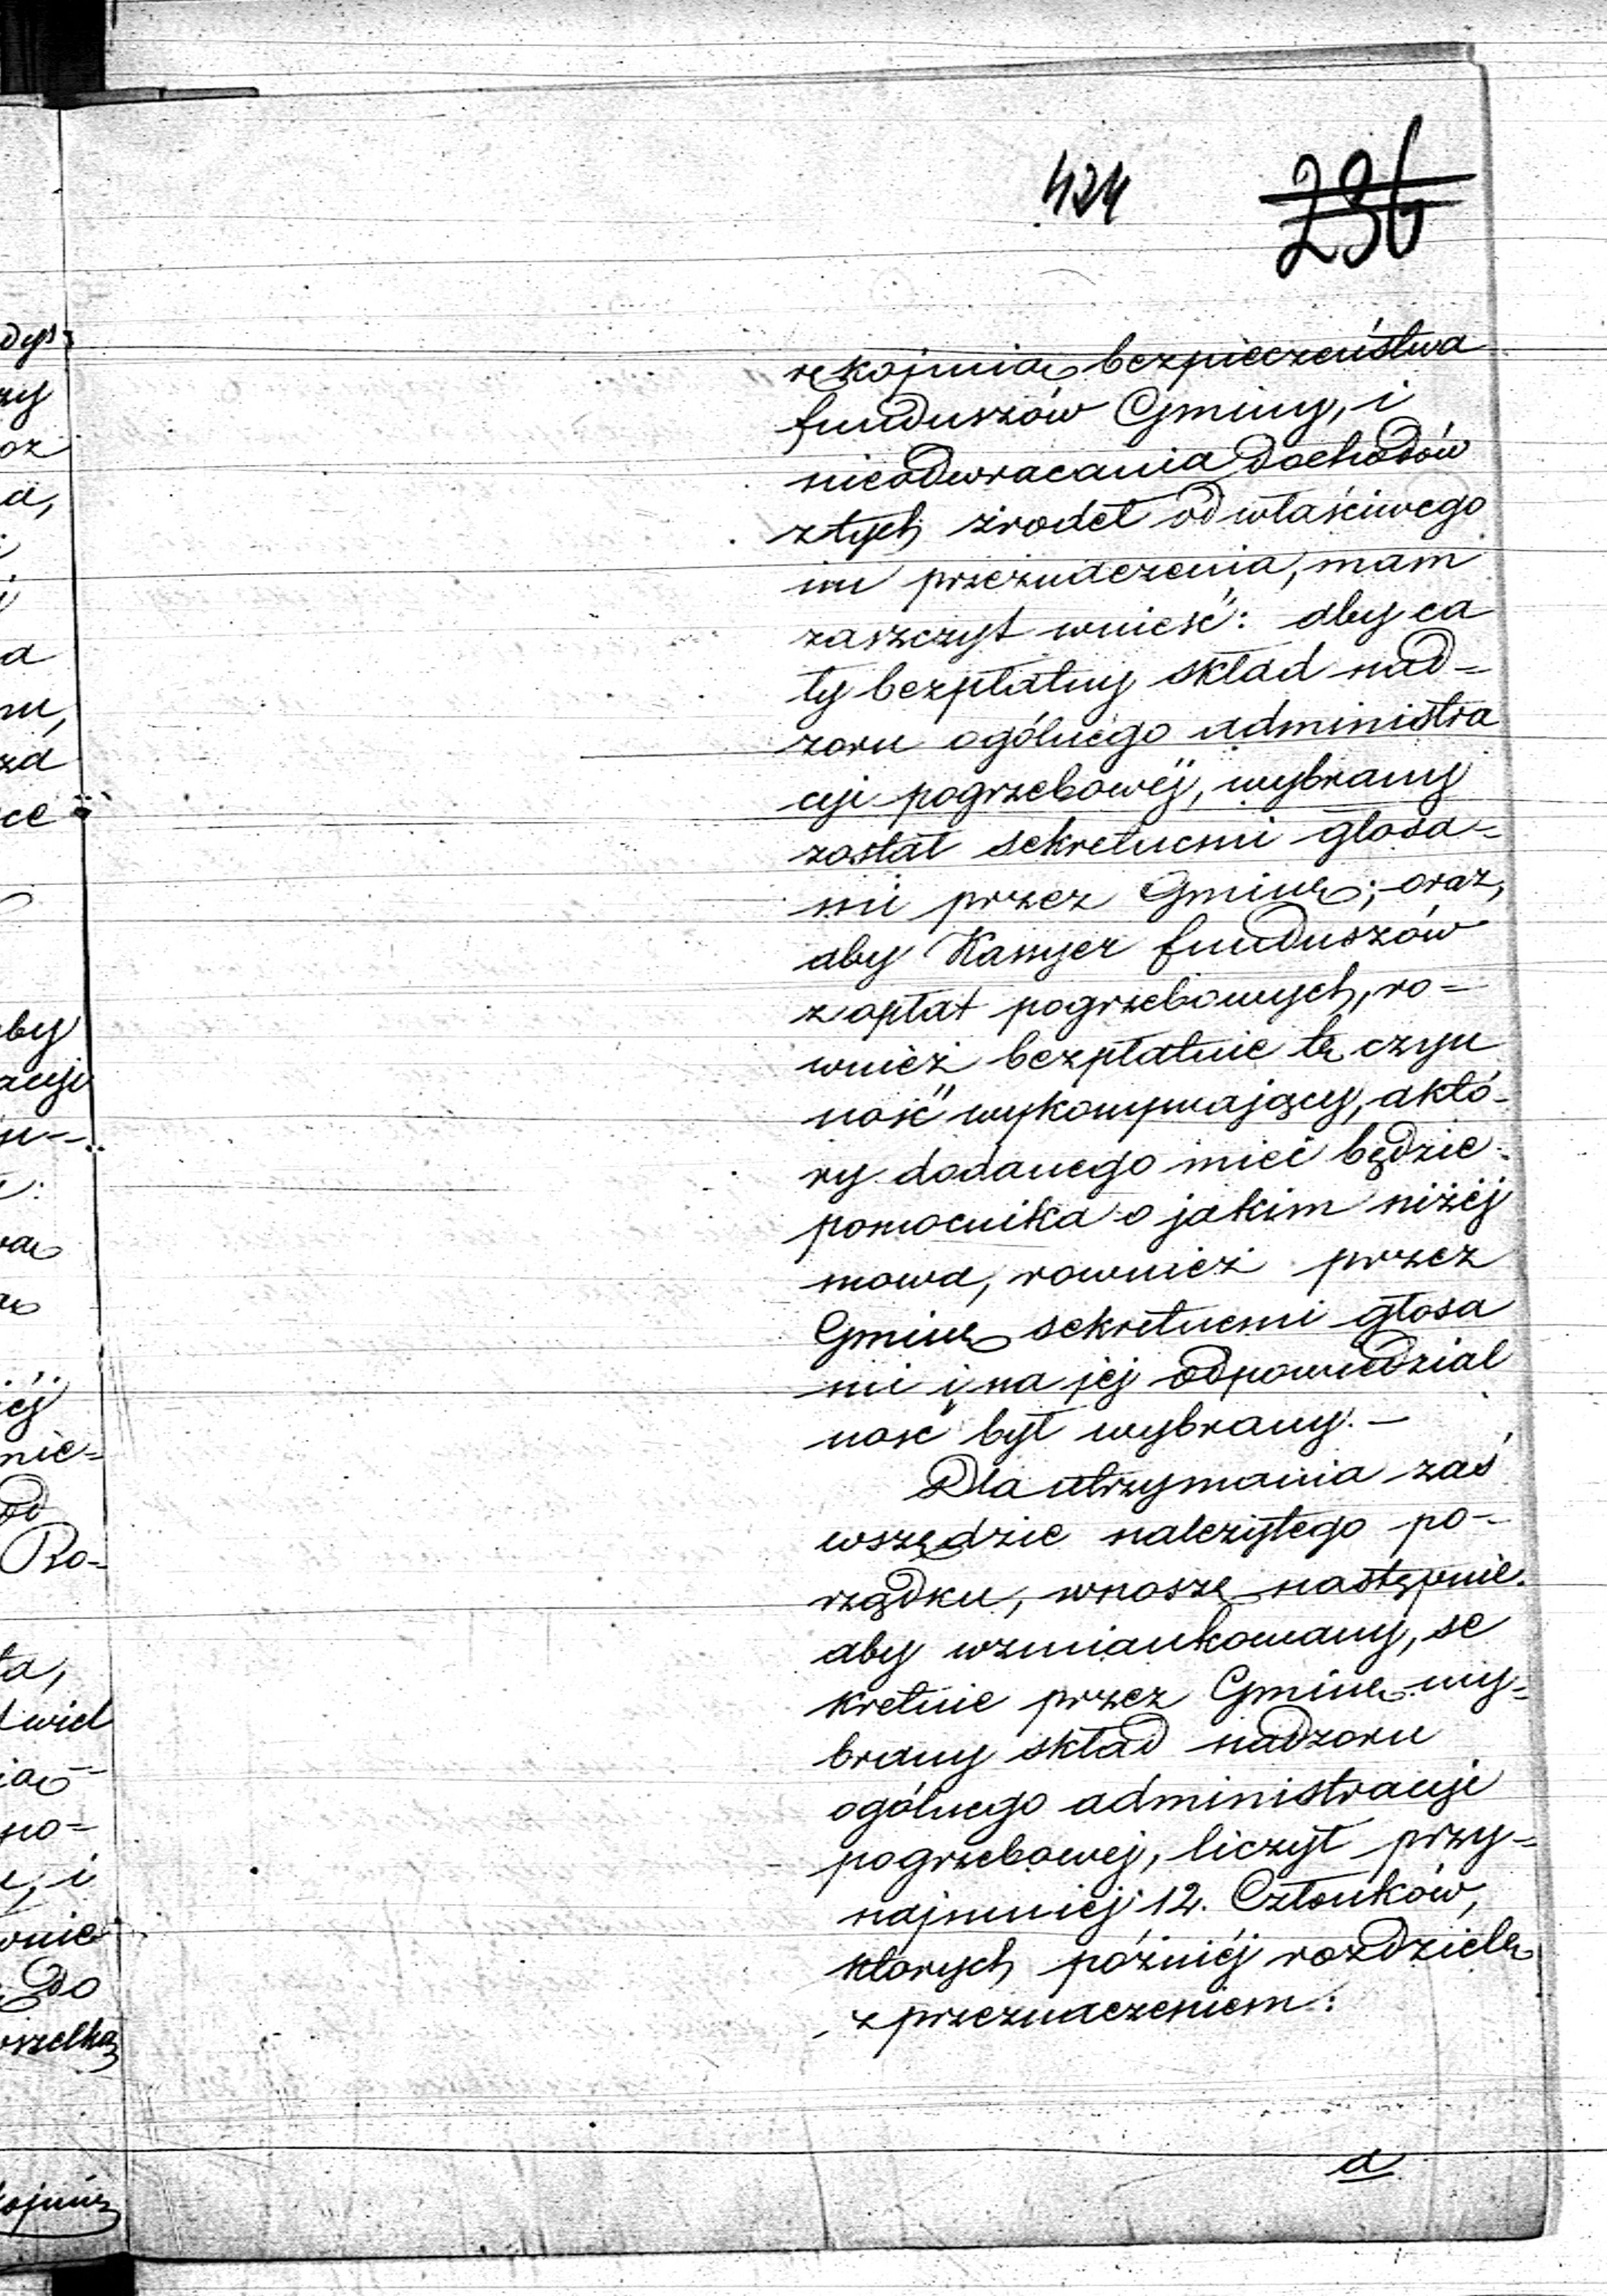 424 236
rękojmią bezpieczeństwa
funduszów Gminy, i
nieodwracania dochodów
z tych źrodeł od właściwego
im przeznaczenia, mam
zaszczyt wnieść: aby ca
ły bezpłatny skład nad=
zoru ogólnego administra
cyi pogrzebowéj, wybrany
został sekretnemi głosa=
mi przez Gminę; oraz,
aby Kassyer funduszów
z opłat pogrzebowych, ro=
wnież bezpłatnie tę czyn
ność wykonywający, a któ-
ry dodanego mieć będzie
pomocnika o jakim niżéj
mowa, rownież przez
Gminę sekretnemi głosa
mi i na jéj odpowiedzial
ność był wybrany. —
Dla utrzymania zaś
wszędzie należytego po-
rządku, wnoszę następnie.
aby wzmiankowany, se
kretnie przez Gminę wy=
brany skład nadzoru
ogólnego administracyi
pogrzebowej, liczył przy=
najmniéj 12. Członków,
ktorych poźniéj rozdzielę
z przeznaczeniem:
a